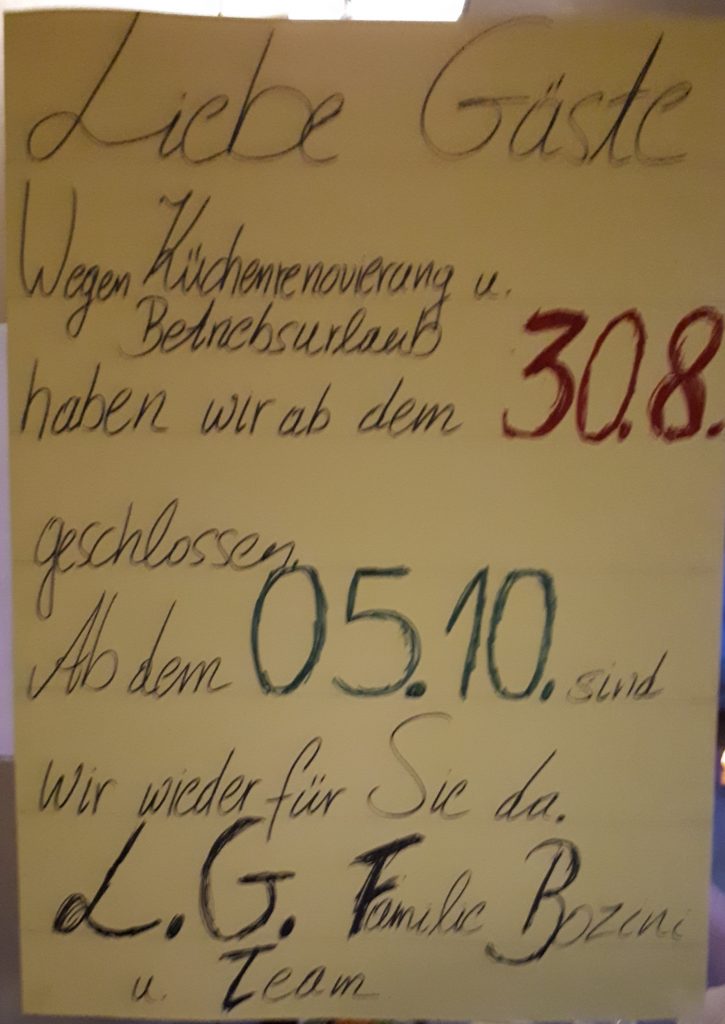 Liebe Gäste
Wegen Küchenrenovierung u.
Betriebsurlaub
haben wir ab dem 30.8.
geschlossen,
Ab dem 05.10. sind
Wir wieder für Sie da.
L.G. Familie Bozini
u. Team